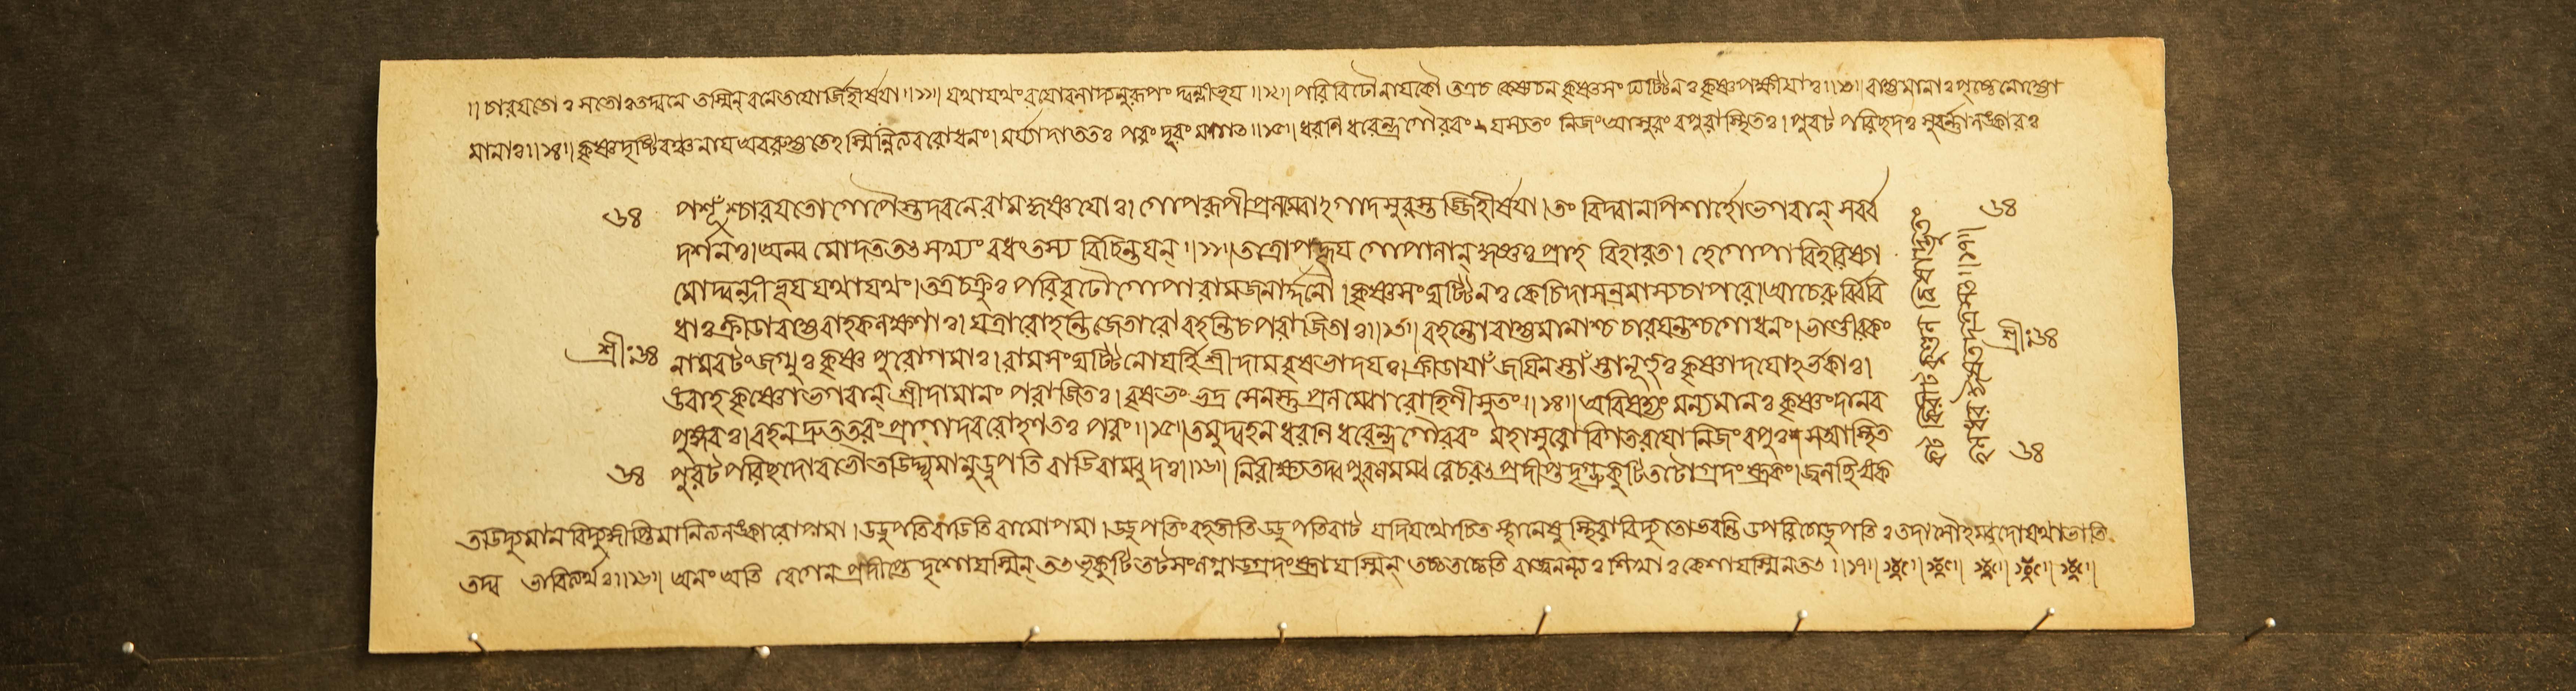 ॥ চারযতোঃ সতোঃ তদ্বনে তস্মিন্ বনে তযোর্জিহীর্ষযা ॥১১॥ যথাযথং বযোবলাদ্যনুরূপং দ্বন্দ্বীভূয ॥১২॥ পরিবিঢৌ নাযকৌ তত্রচ কেচন কৃষ্ণসংঘট্টিনঃ কৃষ্ণপক্ষীযাঃ ॥১৩॥ বাহ্যমানাঃ
মানাঃ ॥১৪॥ কৃষ্ণদৃষ্টিবঞ্চনায অবরুহ্যতেঽস্মিন্নিত্যবরোধনং। মর্য্যাদা ততঃ পরং দূরং ॥১৫॥ ধরণিধরেন্দ্রগৌরবং যস্যতং নিজং আসুরং বপুরাস্থিতঃ। পুরট পরিছদঃ সুবর্ণালঙ্কারঃ
৬৪ পশূঁশ্চারযতোগোপৈস্তদ্বনেরামকৃষ্ণযোঃ। গোপরূপীপ্রলম্বোঽগাদসুরস্তজ্জিহীর্ষযা। তং বিদ্বানপিদাশার্হোভগবান্ সর্ব্ব ৬৪
দর্শনঃ। অন্ব মোদত তৎ সখ্যং বধং তস্য বিচিন্তযন্ ॥১১॥ তত্রোপাহূয গোপালান্ কৃষ্ণঃ প্রাহ বিহারবিত। হেগোপা বিহরিষ্যা
মোদ্বন্দ্বীভূয যথাযথং। তত্রচক্রুঃ পরিবৃঢৌ গোপা রামজনার্দ্দনৌ। কৃষ্ণসংঘট্টিনঃ কেচিদাসন্রামস্যচাপরে। আচেরুর্ব্বিবি
ধাঃ ক্রীডাবাহ্যবাহকলক্ষণাঃ। যত্রারোহন্তিজেতারোবহন্তিচপরাজিতাঃ ॥১৩॥ বহন্তোবাহ্যমানাশ্চ চারযন্তশ্চগোধনং। ভাণ্ডীরকং
শ্রীঃ৬৪ নামবটংজগ্মুঃ কৃষ্ণ পুরোগমাঃ। রামসংঘট্টিনোযর্হি শ্রীদামবৃষভাদযঃ। ক্রীডাযাঁ জযিনস্তাঁ স্তানূহুঃ কৃষ্ণাদযো। শ্রীঃ৬৪
উবাহ কৃষ্ণোভগবান্ শ্রীদামানং পরাজিতঃ। বৃষভং ভদ্র সেনস্তু প্রলম্বোরোহিণীসুতং ॥১৪॥ অবিষহ্যং মন্যমানঃ কৃষ্ণংদানব
পুঙ্গবঃ। বহনদ্রুততরংপ্রাগাদবরোহণতঃ পরং ॥১৫॥ তমুদ্বহন ধরণি ধরেন্দ্রগৌরবং মহাসুরো বিগতরযো নিজংবপুঃ সআস্থিত
৬৪ পুরটপরিছদোবভৌতডিদ্দ্যুমানুডুপতি বাডিবাম্বুদঃ ॥১৬॥ নিরীক্ষ্যতদ্বপুরলমম্বরেচরৎ প্রদীপ্তদৃগ্ভ্রূকুটিতটোগ্রদংষ্ট্রকং। জ্বলচ্ছিখংক ৬৪
তডিদ্দ্যুমান বিদ্যুদ্দীপ্তিমানিত্যলঙ্কারোপমা। উডুপতিবাডিতি বামোপমা। উডুপতিং বহতীতি উডুপতিবাট যদিযথোচিত স্থানেষু স্থিরাবিদ্যুতোভবন্তি উপরিচোডুপতিঃ তদাসৌঽম্বুদোযথাভাতি
তদ্ব ভাবিত্যর্থঃ ॥১৬॥ অলং অতি বেগেন প্রদীপ্তে দৃশোযস্মিন্ তৎ ভ্রূকুটিতটসংলগ্না উগ্রদংষ্ট্রা যস্মিন্ তচ্চতচ্চেতি শিখাঃ কেশাযস্মিন তৎ ॥১৭॥